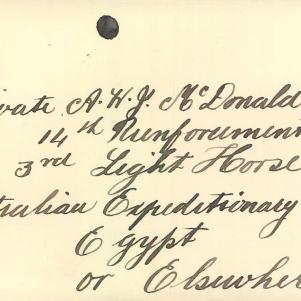 ivate A. H. J. McDonald
14th Reinforcement
3rd Light Horse
tralian Expeditionary
Egypt
or Elsewhe